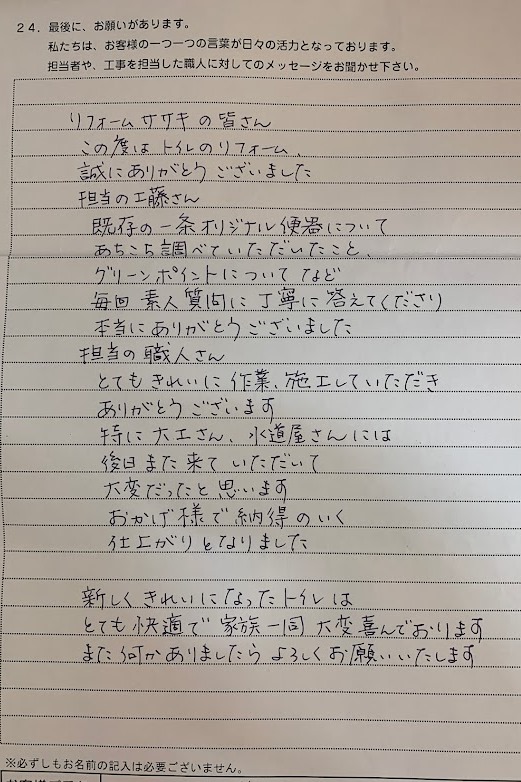 24．最後に、お願いがあります。
私たちは、お客様の一つ一つの言葉が日々の活力となっております。
担当者や、工事を担当した職人に対してのメッセージをお聞かせ下さい。
リフォームササキの皆さん
この度はトイレのリフォーム、
誠にありがとうございました
担当の工藤さん
既存の一条オリジナル便器について
あちこち調べていただいたこと、
グリーンポイントについてなど
毎回素人質問に丁寧に答えてくださり
本当にありがとうございました
担当の職人さん
とてもきれいに作業、施工していただき
ありがとうございます
特に大工さん、水道屋さんには
後日また来ていただいて
大変だったと思います
おかげ様で納得のいく
仕上がりとなりました
新しくきれいになったトイレは
とても快適で家族一同大変喜んでおります
また何かありましたらよろしくお願いいたします
※必ずしもお名前の記入は必要ございません。